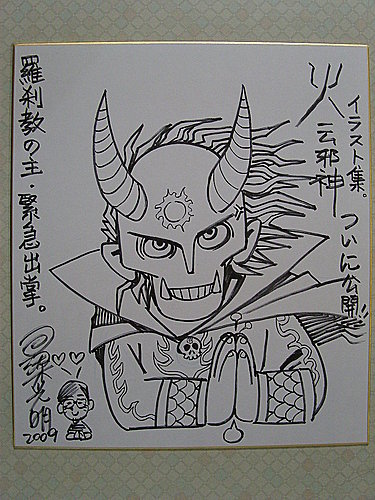 火云邪神
イラスト集。
ついに公開!!
羅刹教の主・緊急出掌。
光明
2009